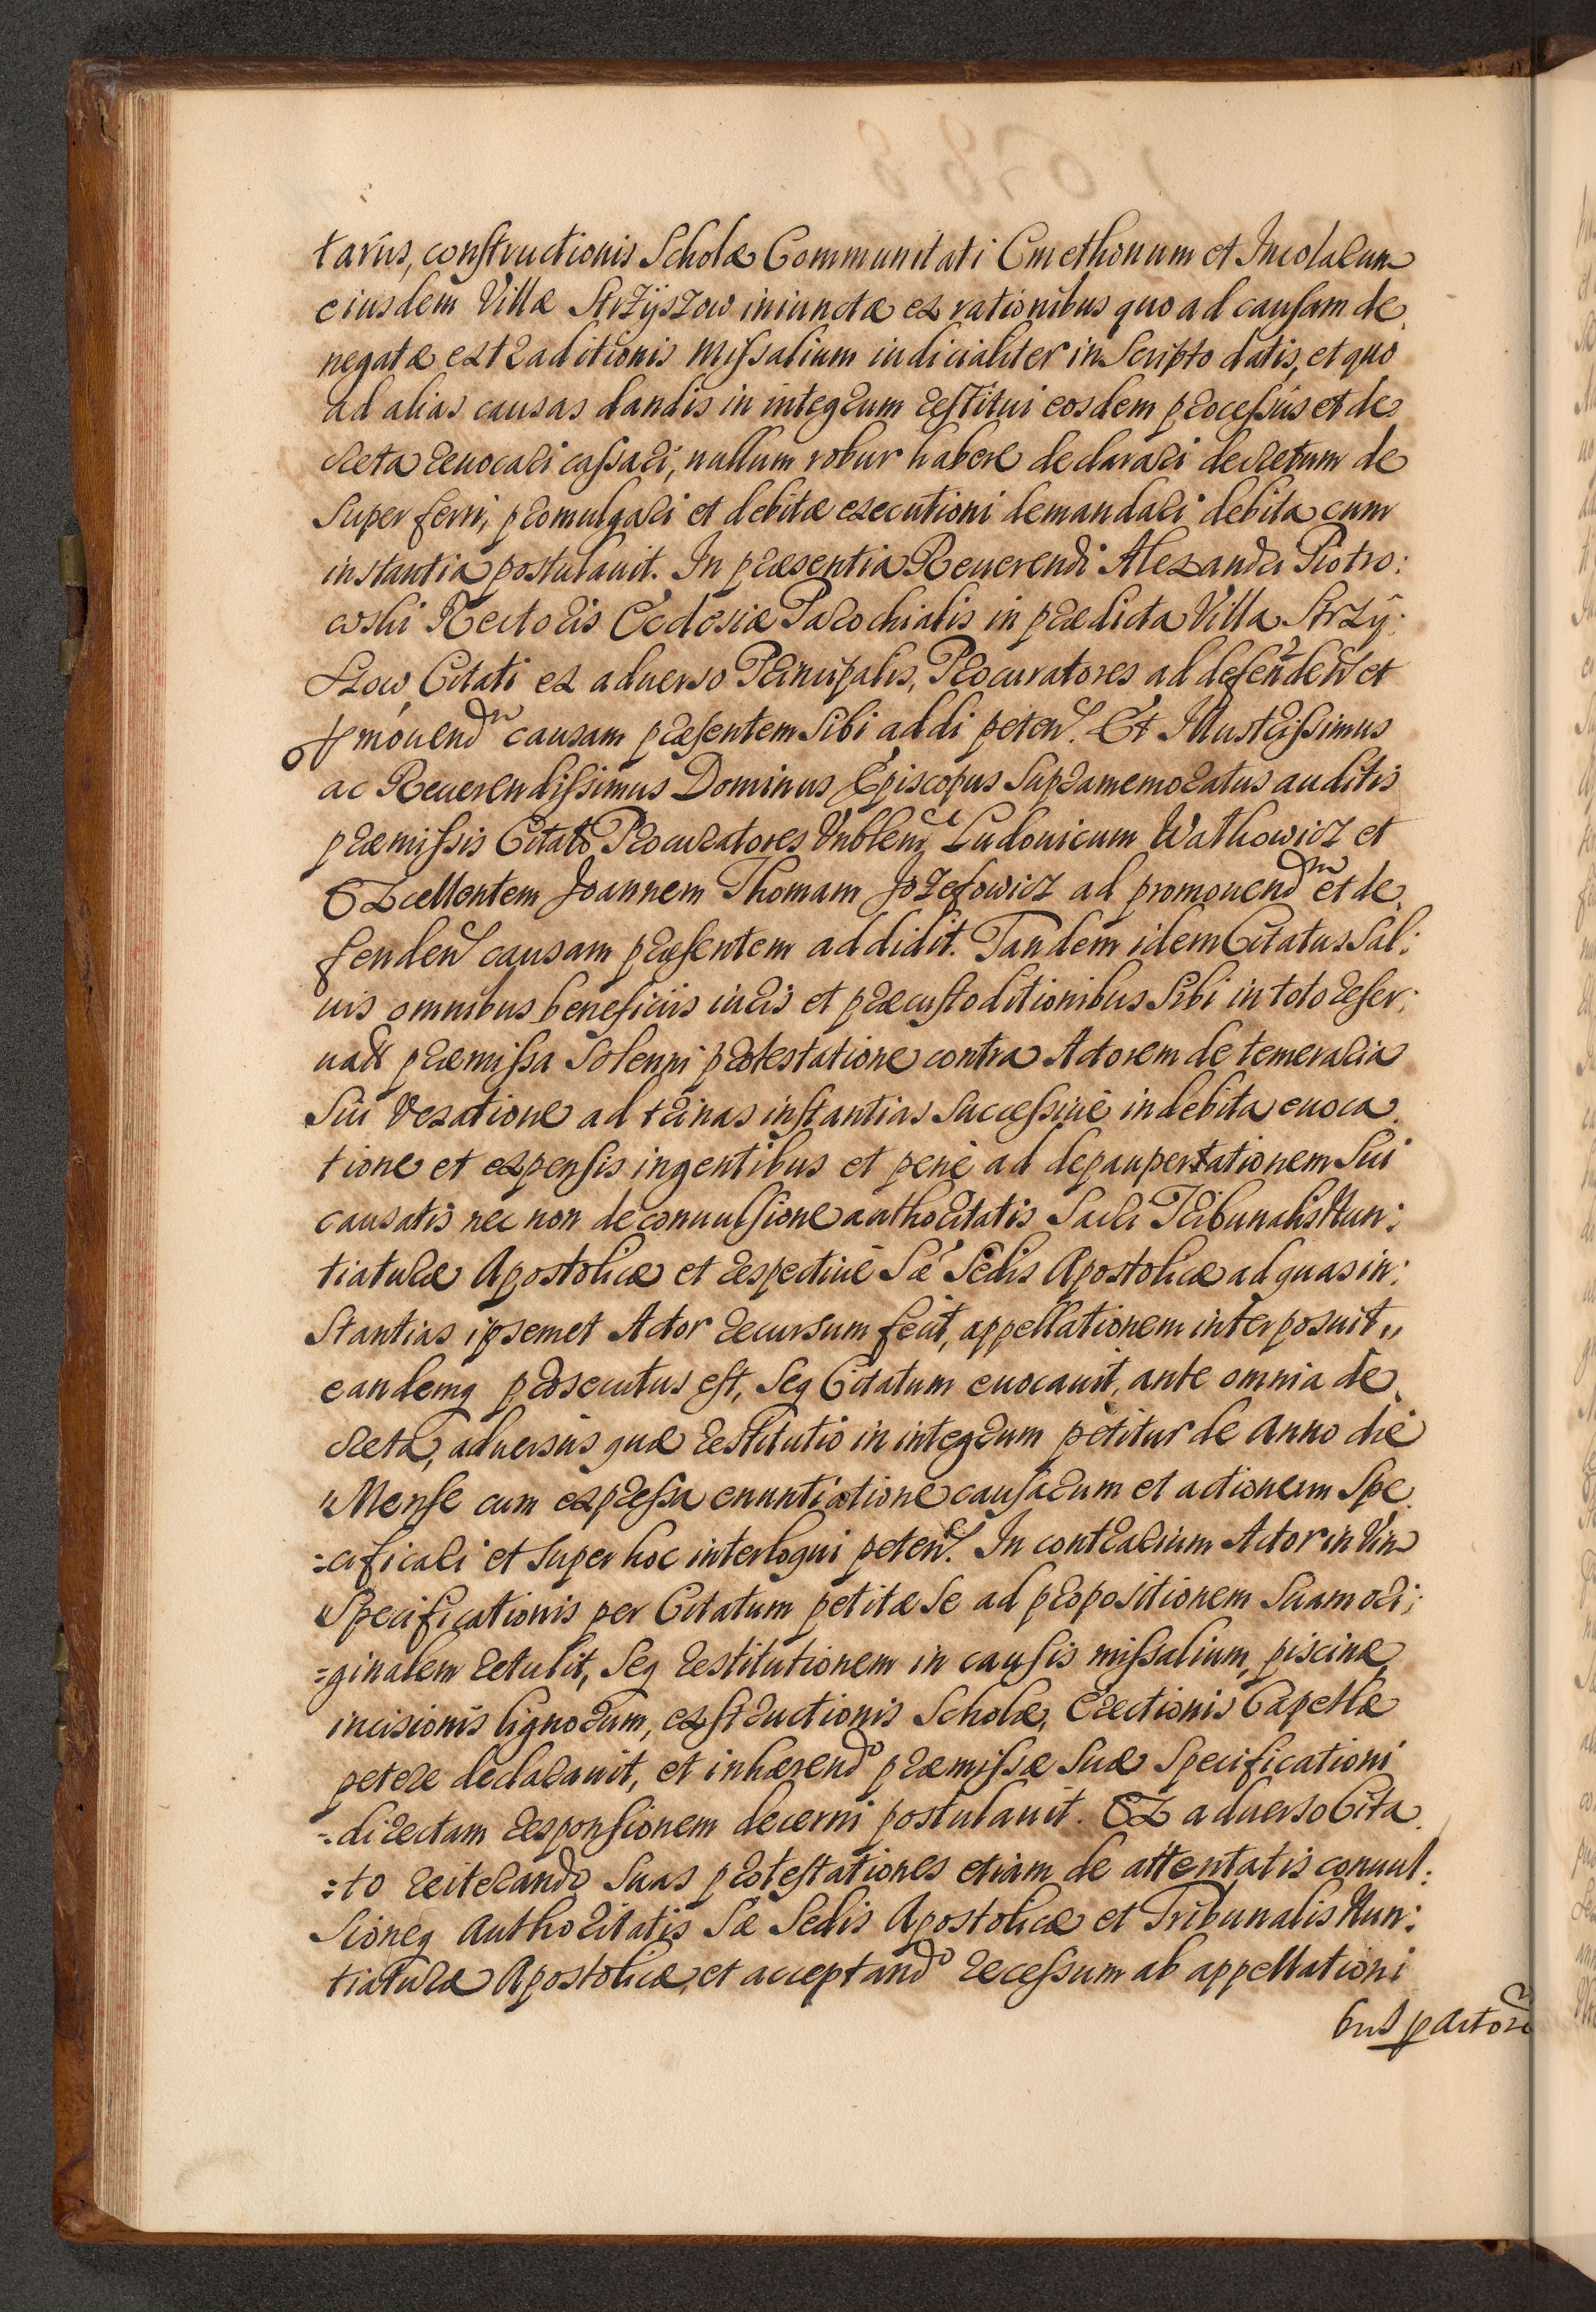 tarijs, constructionis Scholæ Communitati Cmethonum et Incolarum
eiusdem Villæ Strzyszow iniunctæ ex rationibus quo ad causam de
negatæ extraditionis Missalium iudicialiter in Scripto datis, et quo
ad alias causas dandis in integrum restitui eosdem processus et de
creta reuocari cassari, nullum robur habere declarari decretum de
super ferri, promulgari et debitæ executioni demandari debita cum
instantia postulauit. In præsentia Reuerendi Alexandri Piotro:
wski Rectoris Ecclesiæ Parochialis in prædicta Villa Strzy:
szow, Citati ex aduerso Principalis, Procuratores ad defenden et
pmouend causam præsentem sibi addi peten. Et Illustrissimus
ac Reuerendissimus Dominus Episcopus supramemoratus auditis
præmissis Citato Procuratores Vnblem Ludouicum Wathowicz et
Excellentem Joannem Thomam Jozefowicz ad promouend et de
fenden causam præsentem addidit. Tandem idem Citatus Sal:
uis omnibus beneficiis iuris et præcustoditionibus sibi in toto reser:
uat præmissa Solenni protestatione contra Actorem de temeraria
sui vexatione ad trinas instantias successiuè indebita euoca
tione et expensis ingentibus et penè ad depaupertationem sui
causatis nec non de conuulsione authoritatis Sacri Tribunalis Nun:
tiaturæ Apostolicæ et respectiuè Sæ Sedis Apostolicæ ad quas in:
stantias ipsemet Actor recursum fecit, appellationem interposuit,,
eandemq prosecutus est, seq Citatum euocauit, ante omnia de
creta, aduersus quæ restitutio in integrum petitur de Anno die
"Mense cum expressa enuntiatione causarum et actionum spe
:cificari et super hoc interloqui peten. In contrarium Actor in vim
"Specificationis per Citatum petitæ se ad propositionem suam ori:
:ginalem retulit, seq restitutionem in causis missalium, piscinæ,
incisionis lignorum, exstructionis Scholæ, Erectionis Capellæ
petere declarauit, et inhærendo præmissæ suæ specificationi
:directam responsionem decerni postulauit. Ex aduerso Cita
:to reiterando suas protestationes etiam de attentatis conuul:
sioneq Authoritatis Sæ Sedis Apostolicæ et Tribunalis Nun:
tiaturæ Apostolicæ, et acceptando recessum ab appellationi
bus p Actore